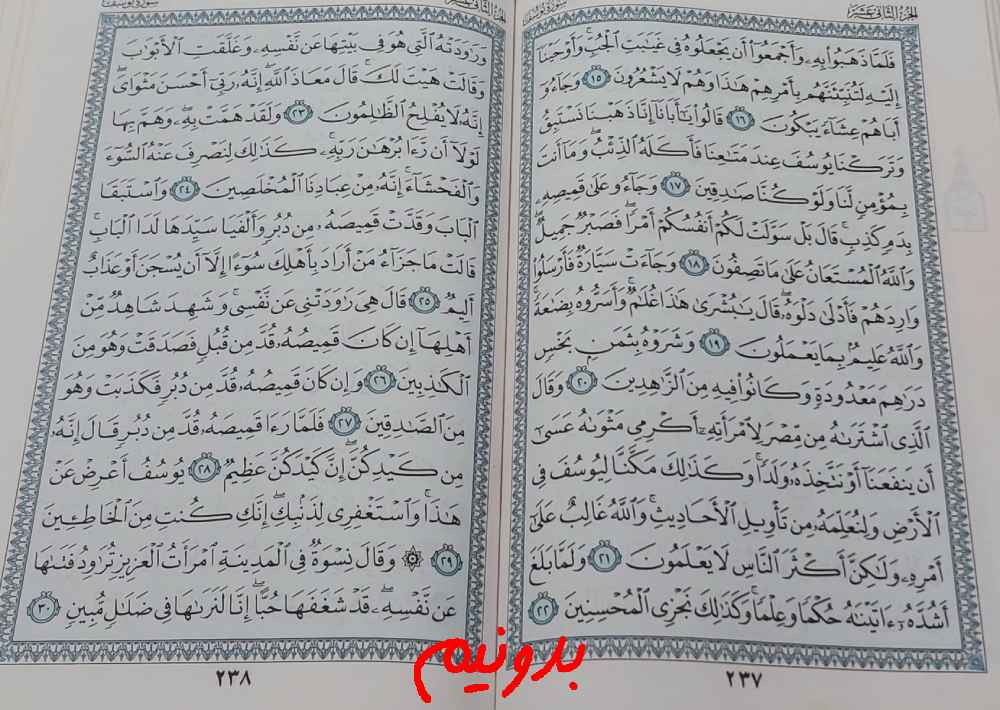 الجزء الثاني عشر
سورة يوسف
فَلَمَّا ذَهَبُوا۟ بِهِۦ وَأَجْمَعُوٓا۟ أَن يَجْعَلُوهُ فِى غَيَٰبَتِ ٱلْجُبِّ ۚ وَأَوْحَيْنَآ
إِلَيْهِ لَتُنَبِّئَنَّهُم بِأَمْرِهِمْ هَٰذَا وَهُمْ لَا يَشْعُرُونَ ١٥ وَجَآءُوٓ
أَبَاهُمْ عِشَآءً يَبْكُونَ ١٦ قَالُوا۟ يَٰٓأَبَانَآ إِنَّا ذَهَبْنَا نَسْتَبِقُ
وَتَرَكْنَا يُوسُفَ عِندَ مَتَٰعِنَا فَأَكَلَهُ ٱلذِّئْبُ ۖ وَمَآ أَنتَ
بِمُؤْمِنٍ لَّنَا وَلَوْ كُنَّا صَٰدِقِينَ ١٧ وَجَآءُو عَلَىٰ قَمِيصِهِۦ
بِدَمٍ كَذِبٍ ۚ قَالَ بَلْ سَوَّلَتْ لَكُمْ أَنفُسُكُمْ أَمْرًا ۖ فَصَبْرٌ جَمِيلٌ ۖ
وَٱللَّهُ ٱلْمُسْتَعَانُ عَلَىٰ مَا تَصِفُونَ ١٨ وَجَآءَتْ سَيَّارَةٌ فَأَرْسَلُوا۟
وَارِدَهُمْ فَأَدْلَىٰ دَلْوَهُۥ ۖ قَالَ يَٰبُشْرَىٰ هَٰذَا غُلَٰمٌ ۚ وَأَسَرُّوهُ بِضَٰعَةً ۚ
وَٱللَّهُ عَلِيمٌۢ بِمَا يَعْمَلُونَ ١٩ وَشَرَوْهُ بِثَمَنٍۭ بَخْسٍ
دَرَٰهِمَ مَعْدُودَةٍ وَكَانُوا۟ فِيهِ مِنَ ٱلزَّٰهِدِينَ ٢٠ وَقَالَ
ٱلَّذِى ٱشْتَرَىٰهُ مِن مِّصْرَ لِٱمْرَأَتِهِۦٓ أَكْرِمِى مَثْوَىٰهُ عَسَىٰٓ
أَن يَنفَعَنَآ أَوْ نَتَّخِذَهُۥ وَلَدًا ۚ وَكَذَٰلِكَ مَكَّنَّا لِيُوسُفَ فِى
ٱلْأَرْضِ وَلِنُعَلِّمَهُۥ مِن تَأْوِيلِ ٱلْأَحَادِيثِ ۚ وَٱللَّهُ غَالِبٌ عَلَىٰٓ
أَمْرِهِۦ وَلَٰكِنَّ أَكْثَرَ ٱلنَّاسِ لَا يَعْلَمُونَ ٢١ وَلَمَّا بَلَغَ
أَشُدَّهُۥٓ ءَاتَيْنَٰهُ حُكْمًا وَعِلْمًا ۚ وَكَذَٰلِكَ نَجْزِى ٱلْمُحْسِنِينَ ٢٢
٢٣٧
الجزء الثاني عشر
سورة يوسف
وَرَٰوَدَتْهُ ٱلَّتِى هُوَ فِى بَيْتِهَا عَن نَّفْسِهِۦ وَغَلَّقَتِ ٱلْأَبْوَٰبَ
وَقَالَتْ هَيْتَ لَكَ ۚ قَالَ مَعَاذَ ٱللَّهِ ۖ إِنَّهُۥ رَبِّىٓ أَحْسَنَ مَثْوَاىَ ۖ
إِنَّهُۥ لَا يُفْلِحُ ٱلظَّٰلِمُونَ ٢٣ وَلَقَدْ هَمَّتْ بِهِۦ ۖ وَهَمَّ بِهَا
لَوْلَآ أَن رَّءَا بُرْهَٰنَ رَبِّهِۦ ۚ كَذَٰلِكَ لِنَصْرِفَ عَنْهُ ٱلسُّوٓءَ
وَٱلْفَحْشَآءَ ۚ إِنَّهُۥ مِنْ عِبَادِنَا ٱلْمُخْلَصِينَ ٢٤ وَٱسْتَبَقَا
ٱلْبَابَ وَقَدَّتْ قَمِيصَهُۥ مِن دُبُرٍ وَأَلْفَيَا سَيِّدَهَا لَدَا ٱلْبَابِ ۚ
قَالَتْ مَا جَزَآءُ مَنْ أَرَادَ بِأَهْلِكَ سُوٓءًا إِلَّآ أَن يُسْجَنَ أَوْ عَذَابٌ
أَلِيمٌ ٢٥ قَالَ هِىَ رَٰوَدَتْنِى عَن نَّفْسِى ۚ وَشَهِدَ شَاهِدٌ مِّنْ
أَهْلِهَآ إِن كَانَ قَمِيصُهُۥ قُدَّ مِن قُبُلٍ فَصَدَقَتْ وَهُوَ مِنَ
ٱلْكَٰذِبِينَ ٢٦ وَإِن كَانَ قَمِيصُهُۥ قُدَّ مِن دُبُرٍ فَكَذَبَتْ وَهُوَ
مِنَ ٱلصَّٰدِقِينَ ٢٧ فَلَمَّا رَءَا قَمِيصَهُۥ قُدَّ مِن دُبُرٍ قَالَ إِنَّهُۥ
مِن كَيْدِكُنَّ ۖ إِنَّ كَيْدَكُنَّ عَظِيمٌ ٢٨ يُوسُفُ أَعْرِضْ عَنْ
هَٰذَا ۚ وَٱسْتَغْفِرِى لِذَنۢبِكِ ۖ إِنَّكِ كُنتِ مِنَ ٱلْخَاطِـِٔينَ
٢٩ ۞ وَقَالَ نِسْوَةٌ فِى ٱلْمَدِينَةِ ٱمْرَأَتُ ٱلْعَزِيزِ تُرَٰوِدُ فَتَىٰهَا
عَن نَّفْسِهِۦ ۖ قَدْ شَغَفَهَا حُبًّا ۖ إِنَّا لَنَرَىٰهَا فِى ضَلَٰلٍ مُّبِينٍ ٣٠
٢٣٨
بدونیم